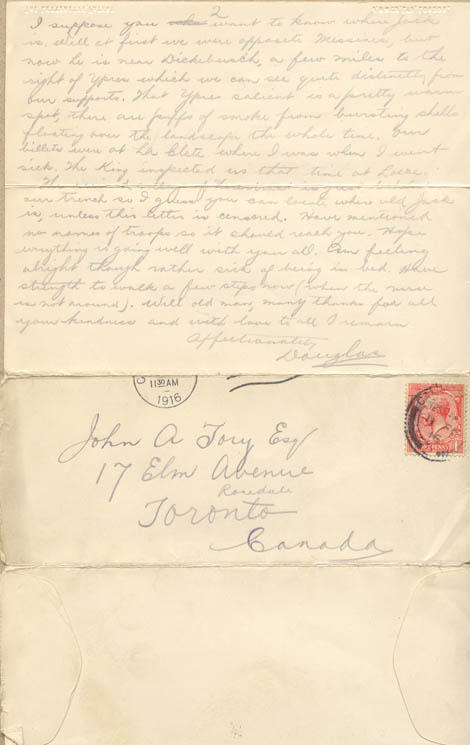 2
I suppose you want to know where Jack
is. Well at first we were opposite Messines, but
now he is near Dickebusch, a few miles to the
right of Ypres which we can see quite distinctly from
our supports. That Ypres salient is a pretty warm
spot, there are puffs of smoke from bursting shells
floating over the landscape the whole time. Our
billets were at La Clete where I was when I went
sick. The King inspected us that time at Locre.
our trench so I guess you can locate where old Jack
is, unless this letter is censored. Have mentioned
no names of troops so it should reach you. Hope
everything is going well with you all. Am feeling
alright though rather sick of being in bed. Have
strength to walk a few steps now (when the nurse
is not around). Well old man, many thanks for all
your kindness and with love to all I remain
Affectionately
Douglas
11 30 AM
1916
John A Tory Esq
17 Elm Avenue
Rosedale
Toronto
Canada